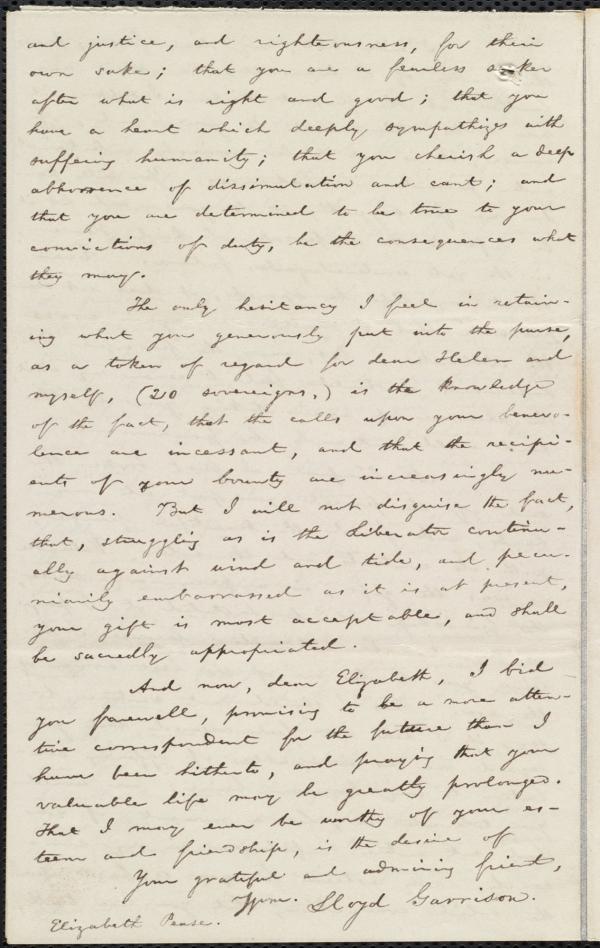 and justice, and righteousness, for their
own sake; that you are a fearless seeker
after what is right and good; that you
have a heart which deeply sympathizes with
suffering humanity; that you cherish a deep
abhorrence of dissimulation and cant; and
that you are determined to be true to your
convictions of duty, be the consequences what
they may.
The only hesitancy I feel in retain-
ing what you generously put into the purse,
as a token of regard for dear Helen and
myself, (20 sovereigns,) is the knowledge
of the fact, that the calls upon your benevo-
lence are incessant, and that the recipi-
ents of your bounty are increasingly nu-
merous. But I will not disguise the fact,
that, struggling as is the Liberator continu-
ally against wind and tide, and pecu-
niarily embarrassed as it is at present,
your gift is most acceptable, and shall
be sacredly appropriated.
And now, dear Elizabeth, I bid
you farewell, promising to be a more atten-
tive correspondent for the future than I
have been hitherto, and praying that your
valuable life may be greatly prolonged.
That I may ever be worthy of your es-
teem and friendship, is the desire of
Your grateful and admiring friend,
Wm. Lloyd Garrison.
Elizabeth Pease.